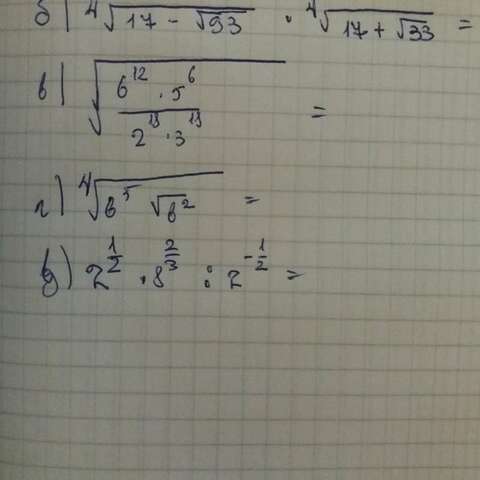 б) ⁴√(17 - √93) · ⁴√(17 + √33) =
в) √((6¹² · 5⁶)/(2¹³ · 3¹³)) =
г) ⁴√(b⁵ √b²) =
д) 2^(1/2) · 8^(2/3) : 2^(-1/2) =